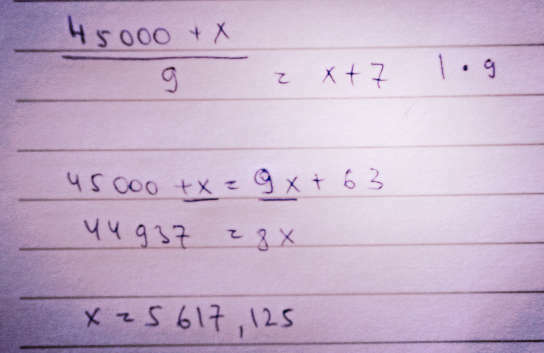 45000 + x
9 = x + 7 | · 9
45000 + x = 9x + 63
44937 = 8x
x = 5617,125